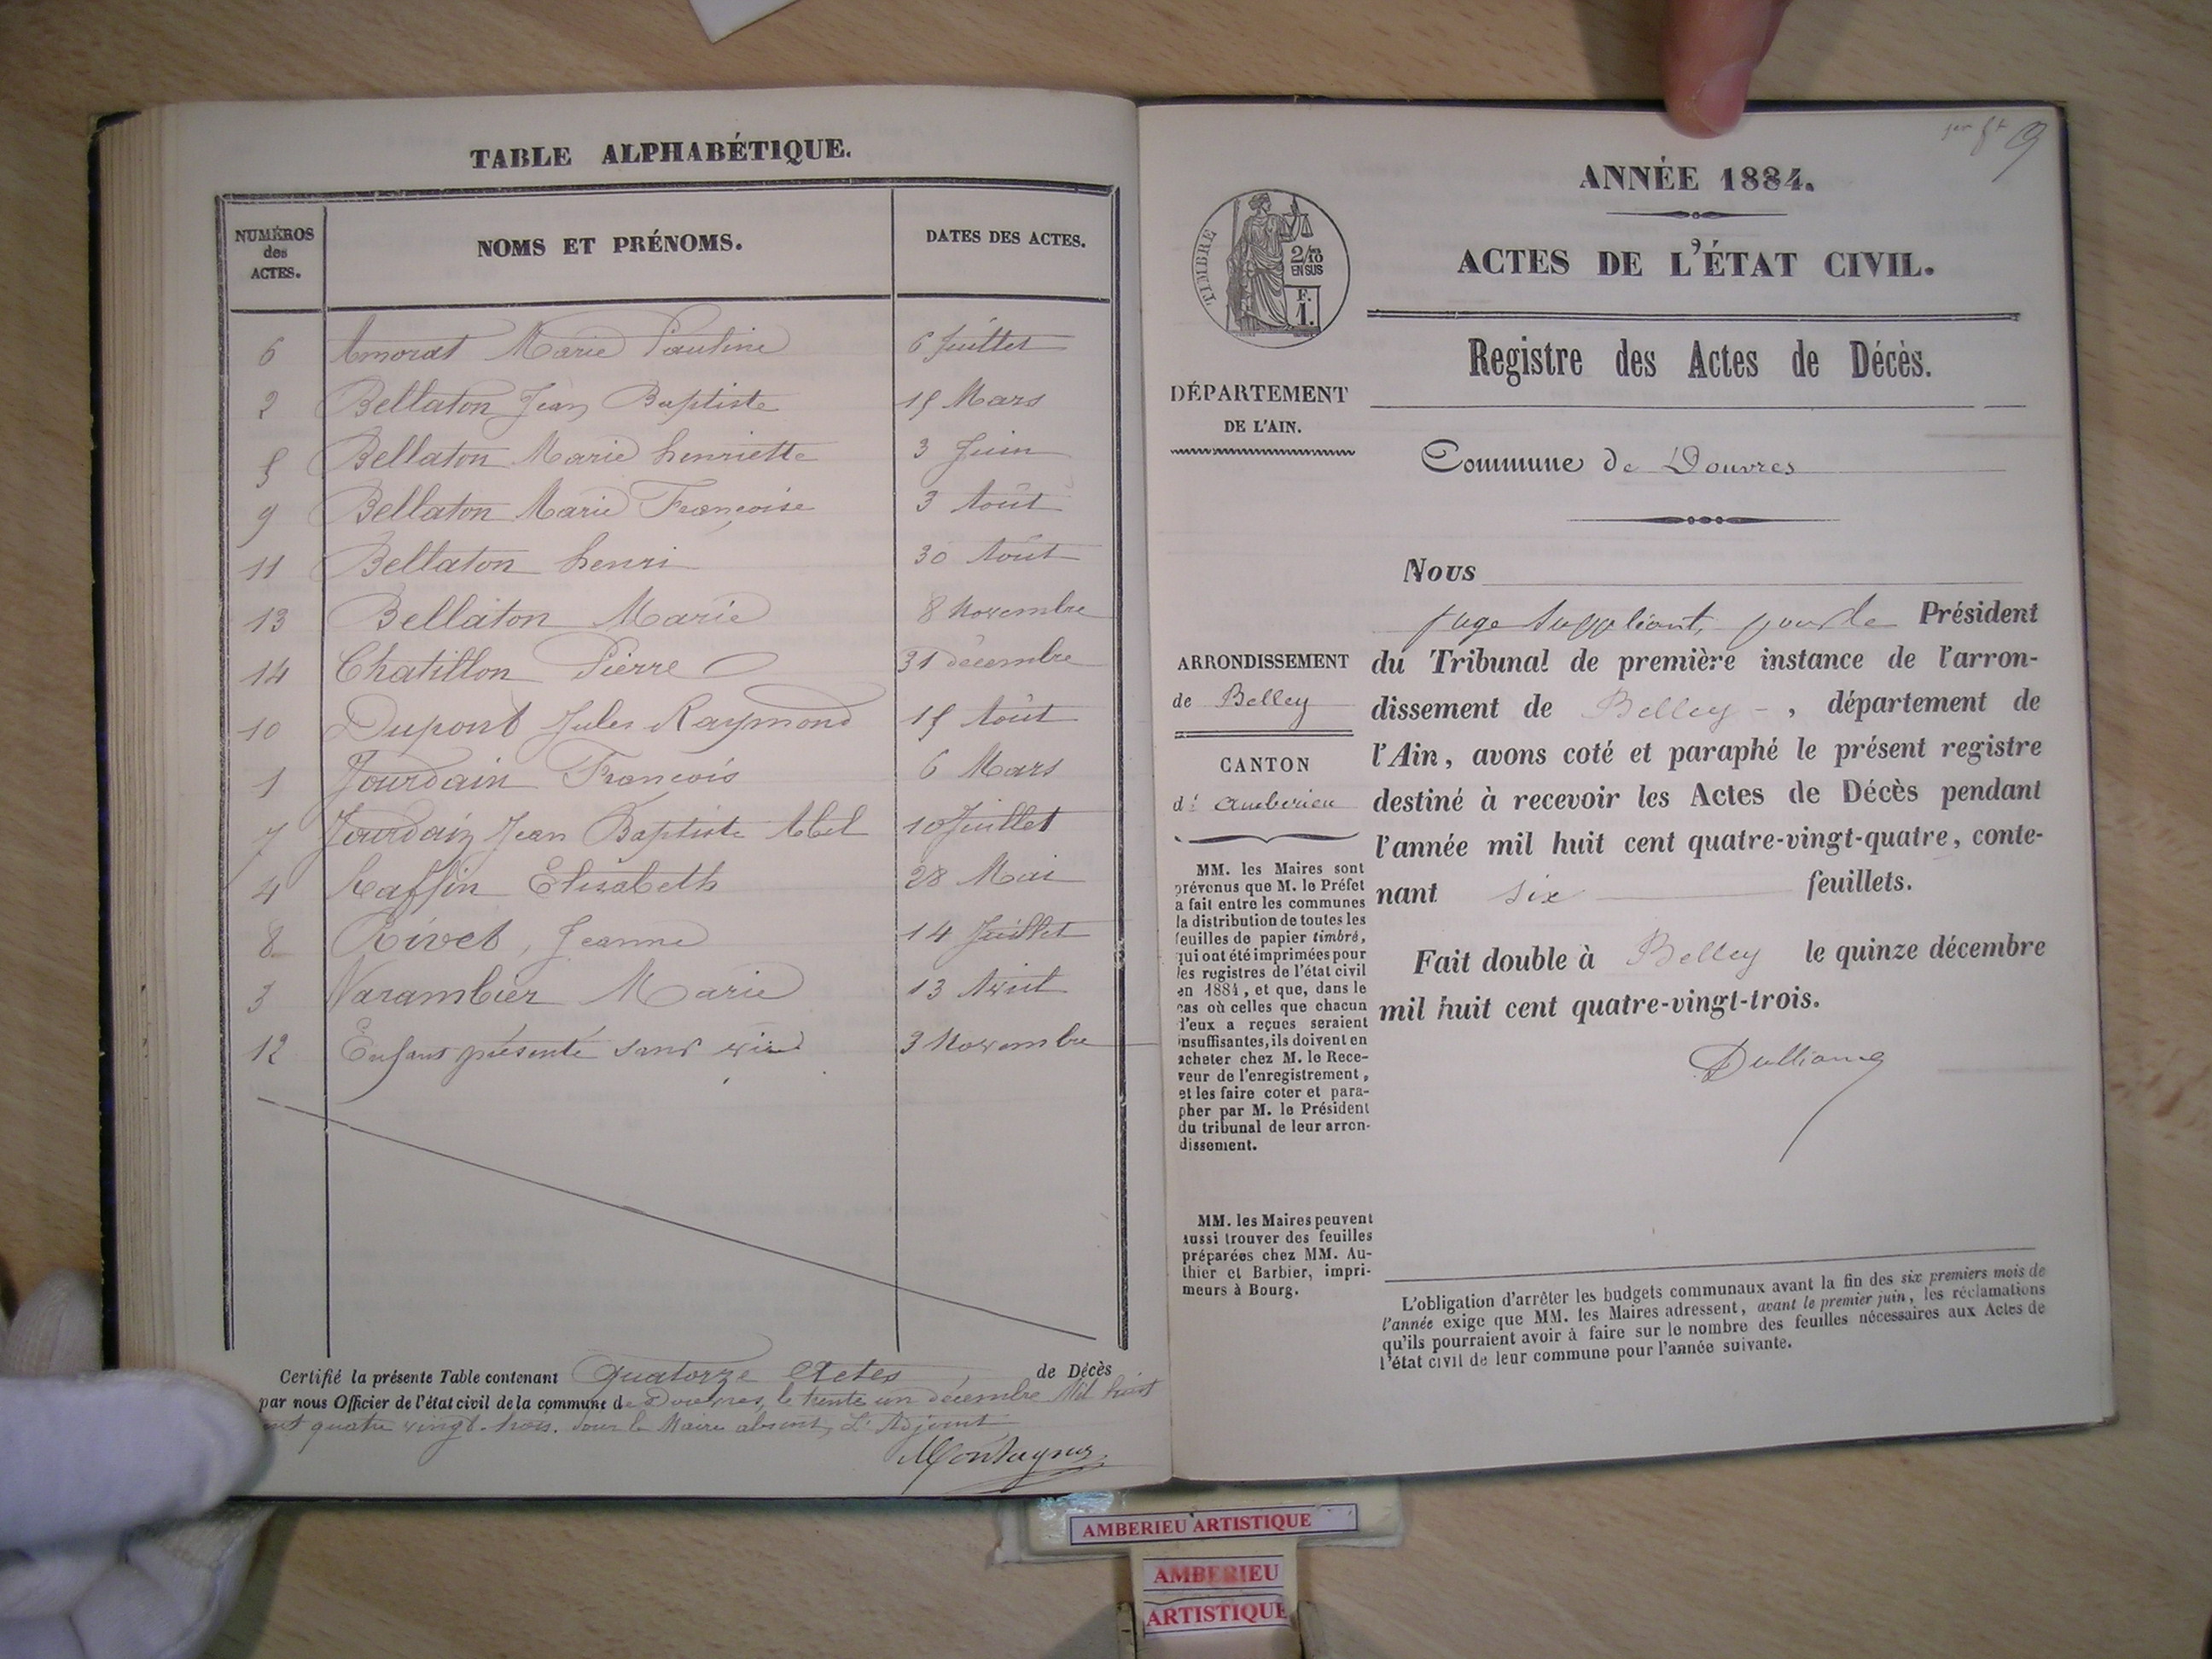 TABLE ALPHABÉTIQUE.
NUMÉROS des ACTES. NOMS ET PRÉNOMS. DATES DES ACTES.
6 Amorat Marie Pauline 6 Juillet
2 Bellaton Jean Baptiste 15 Mars
5 Bellaton Marie henriette 3 Juin
9 Bellaton Marie Françoise 3 Août
11 Bellaton henri 30 Août
13 Bellaton Marie 8 Novembre
14 Chatillon Pierre 31 décembre
10 Dupont Jules Raymond 15 Août
1 Jourdain François 6 Mars
7 Jourdain Jean Baptiste Abel 10 Juillet
4 Raffin Elisabeth 28 Mai
8 Rivet, Jeanne 14 Juillet
3 Varambier Marie 13 Avril
12 Enfant présenté sans vie 3 Novembre
Certifié la présente Table contenant Quatorze Actes de Décès
par nous Officier de l'état civil de la commune de Douvres, le trente un décembre Mil huit
cent quatre vingt-trois. Pour le Maire absent, L'Adjoint
Montagner
1er ft 9
ANNÉE 1884.
ACTES DE L'ÉTAT CIVIL.
TIMBRE
2/10
EN SUS
F.
1.
Registre des Actes de Décès.
DÉPARTEMENT
DE L'AIN.
Commune de Douvres
Nous
juge suppléant, pour le Président
du Tribunal de première instance de l'arron-
dissement de Belley, département de
l'Ain, avons coté et paraphé le présent registre
destiné à recevoir les Actes de Décès pendant
l'année mil huit cent quatre-vingt-quatre, conte-
nant six feuillets.
Fait double à Belley le quinze décembre
mil huit cent quatre-vingt-trois.
ARRONDISSEMENT
de Belley
CANTON
d' Amberieu
MM. les Maires sont
prévenus que M. le Préfet
a fait entre les communes
la distribution de toutes les
feuilles de papier timbré,
qui ont été imprimées pour
les registres de l'état civil
en 1884, et que, dans le
cas où celles que chacun
d'eux a reçues seraient
insuffisantes, ils doivent en
acheter chez M. le Rece-
veur de l'enregistrement,
et les faire coter et para-
pher par M. le Président
du tribunal de leur arron-
dissement.
MM. les Maires peuvent
aussi trouver des feuilles
préparées chez MM. Au-
thier et Barbier, impri-
meurs à Bourg.
L'obligation d'arrêter les budgets communaux avant la fin des six premiers mois de
l'année exige que MM. les Maires adressent, avant le premier juin, les réclamations
qu'ils pourraient avoir à faire sur le nombre des feuilles nécessaires aux Actes de
l'état civil de leur commune pour l'année suivante.
AMBERIEU ARTISTIQUE
AMBERIEU
ARTISTIQUE